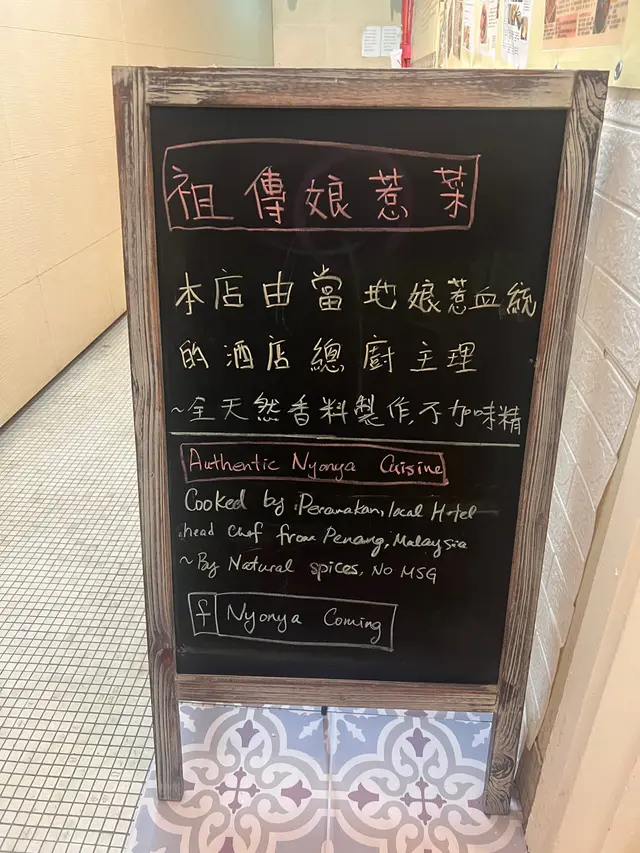 祖傳娘惹菜
本店由當地娘惹血統
的酒店總廚主理
~全天然香料製作,不加味精
Authentic Nyonya Cuisine
Cooked by Peranakan, local Hotel
head chef from Penang, Malaysia
~By Natural spices, No MSG
f Nyonya Coming